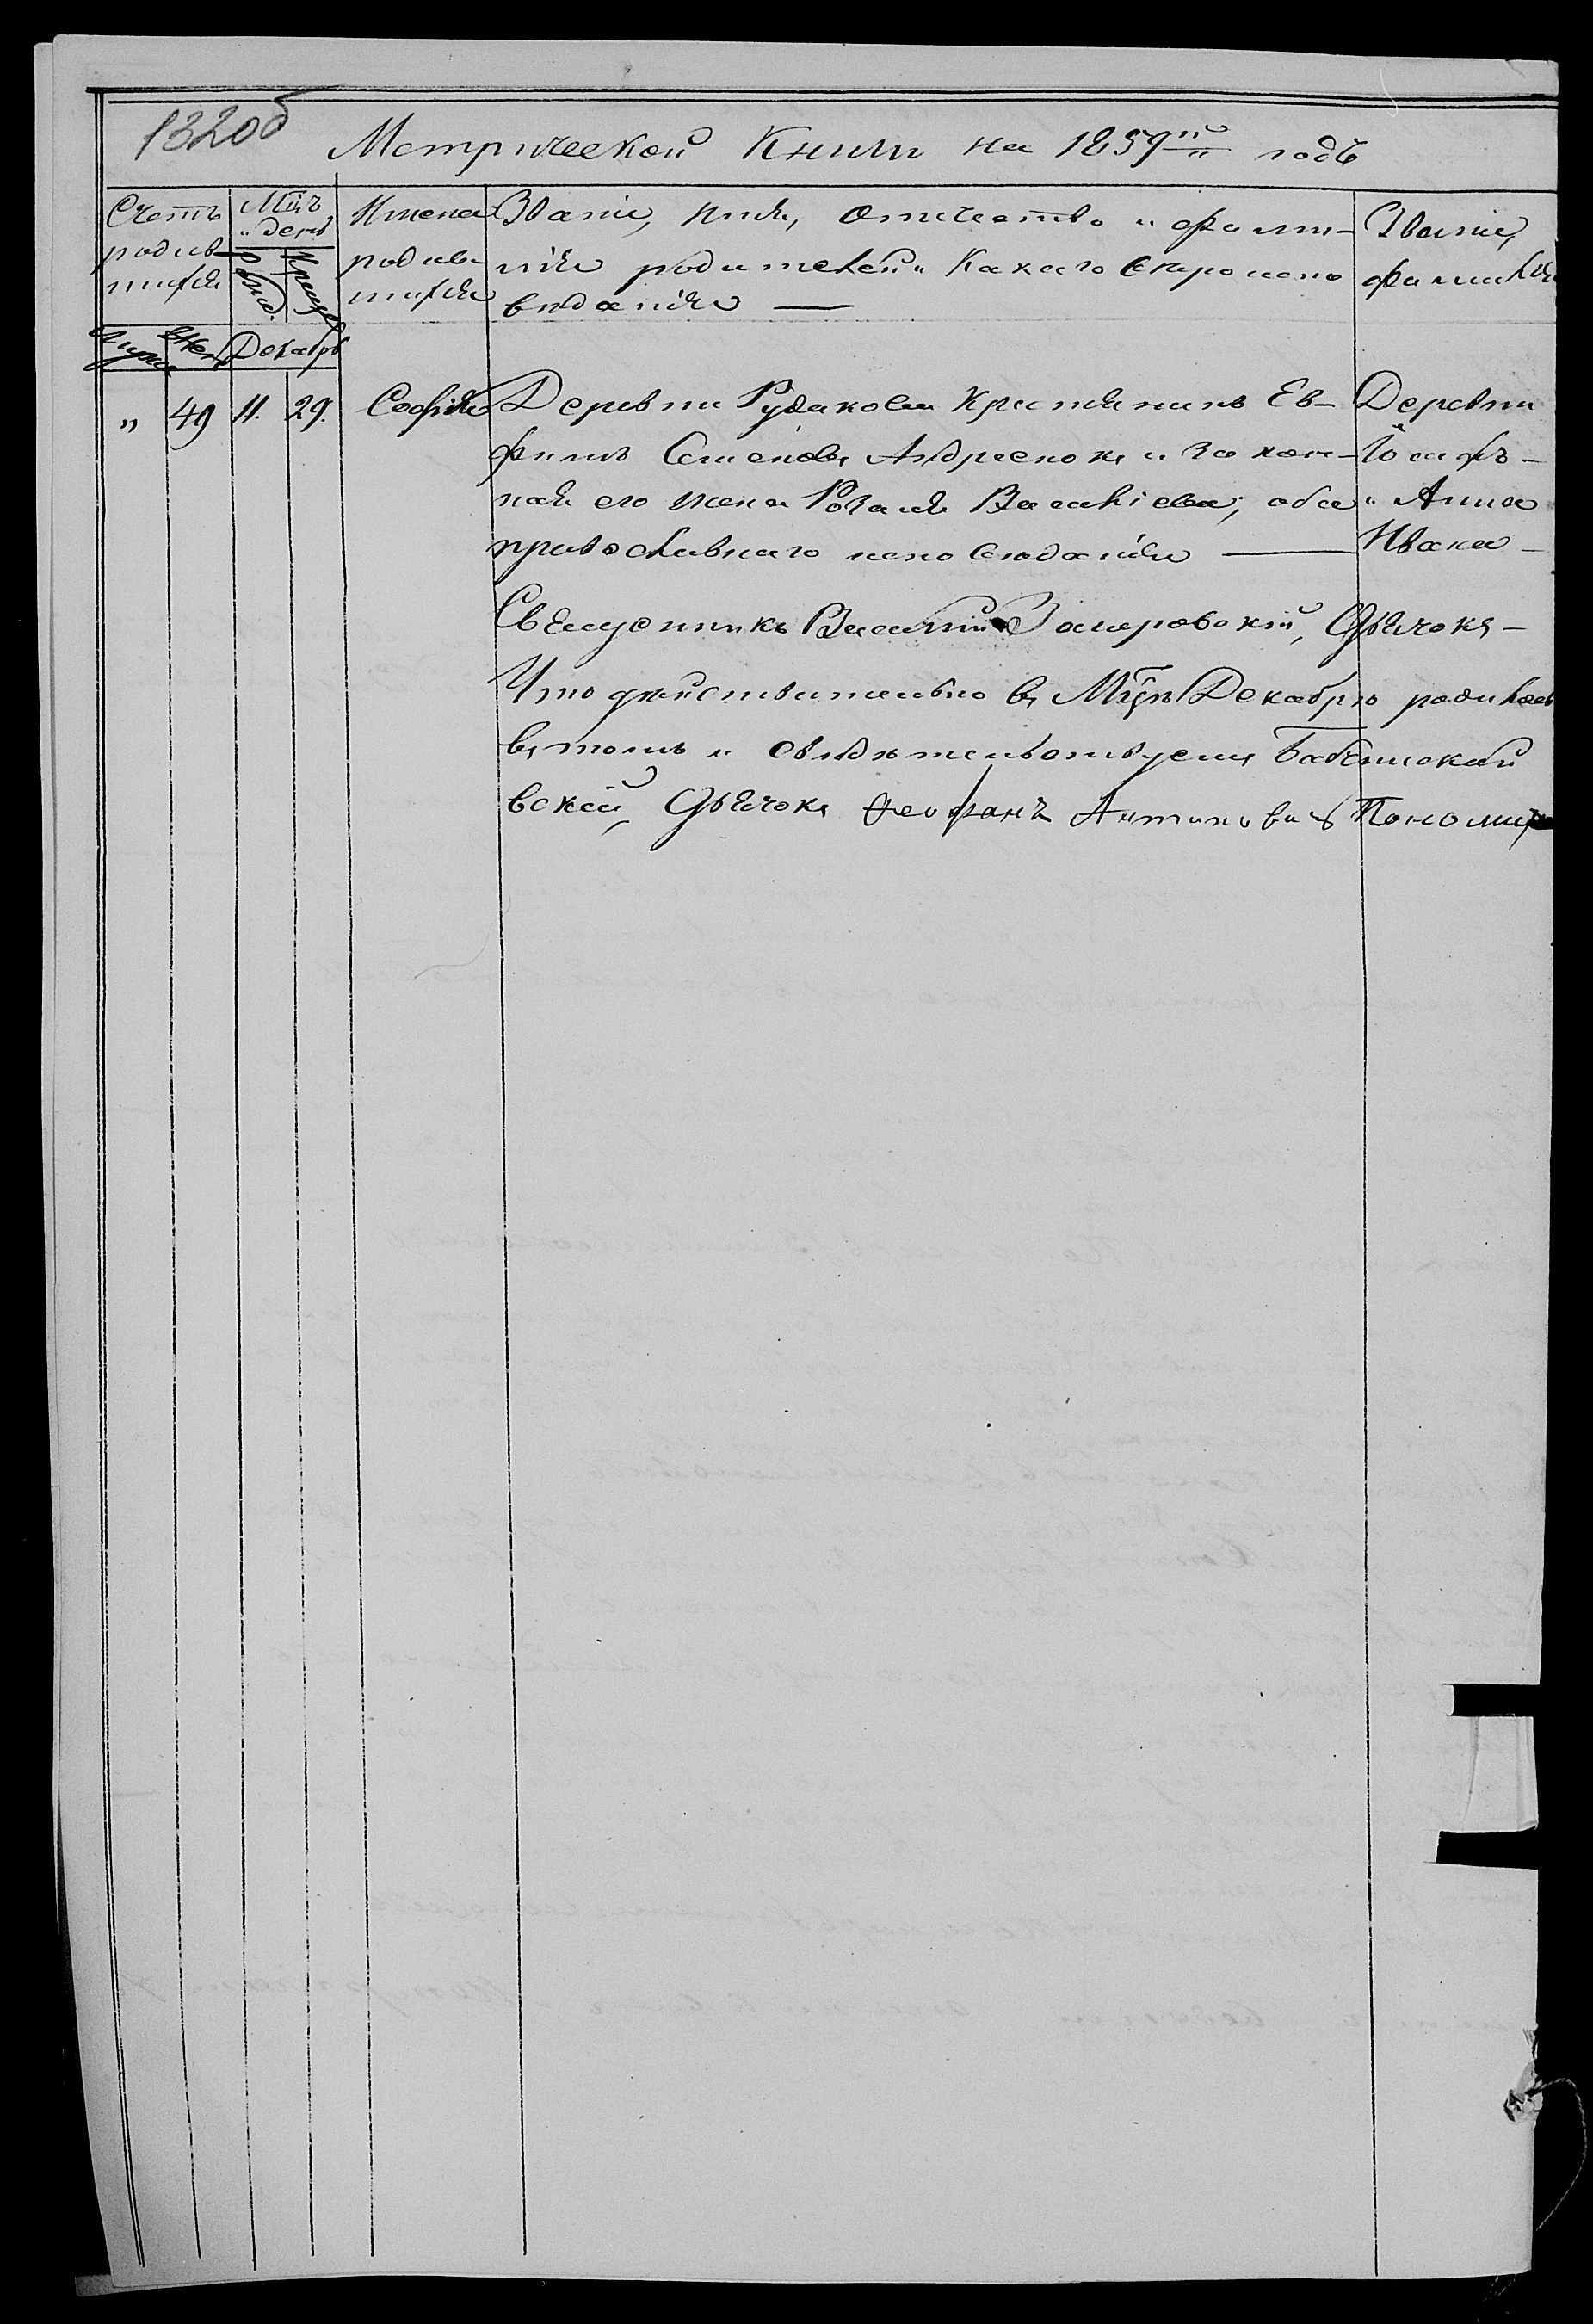 132об
Метрической Книги на 1859й годъ
Счетъ родив-шихся
Мцъ и день
рожд.
Крещ.
Имена родив-шихся
Званіе, имя, отчество и фами-
лія родителей и какаго вѣроиспо
вѣданія —
Званіе,
фамилія
Мужск Женс
Декабрь
„ 49 11. 29. Софія
Деревни Рудакова крестьянинъ Ев-
фимъ Семеновъ Андреенокъ и закон-
ная его жена Розалія Василіева; оба
православнаго исповѣданія —
Деревни
Іосифъ -
и Анна
Ивана -
Священникъ Василій Заморовскій, Дьячокъ -
Что дѣйствительно въ Мцѣ Декабрѣ родилось
въ томъ и свидѣтельствуемъ
вскій, Дьячокъ Феофанъ Антиновичъ Пономарь